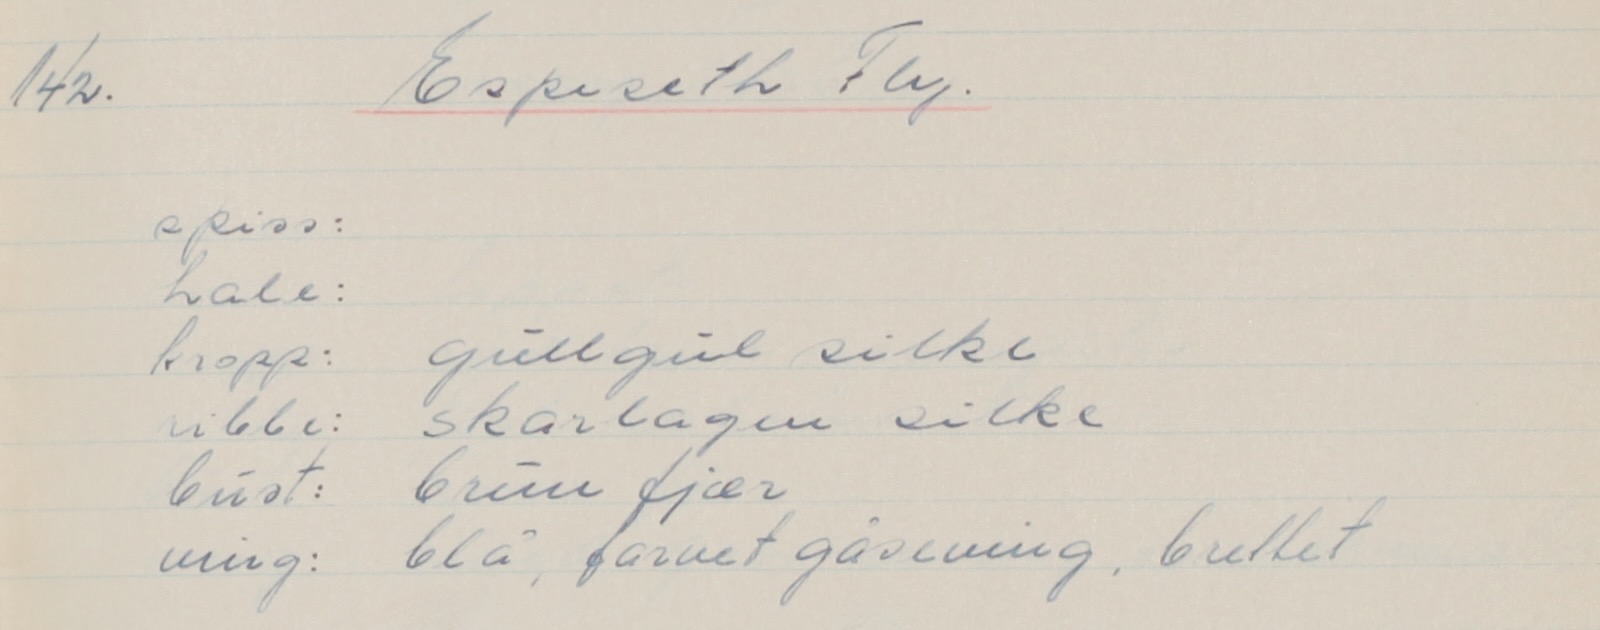 142. Espeseth Fly.
spiss:
hale:
kropp: gullgul silke
ribbe: skarlagen silke
bust: brun fjær
ving: blå, farvet gåseving, brettet